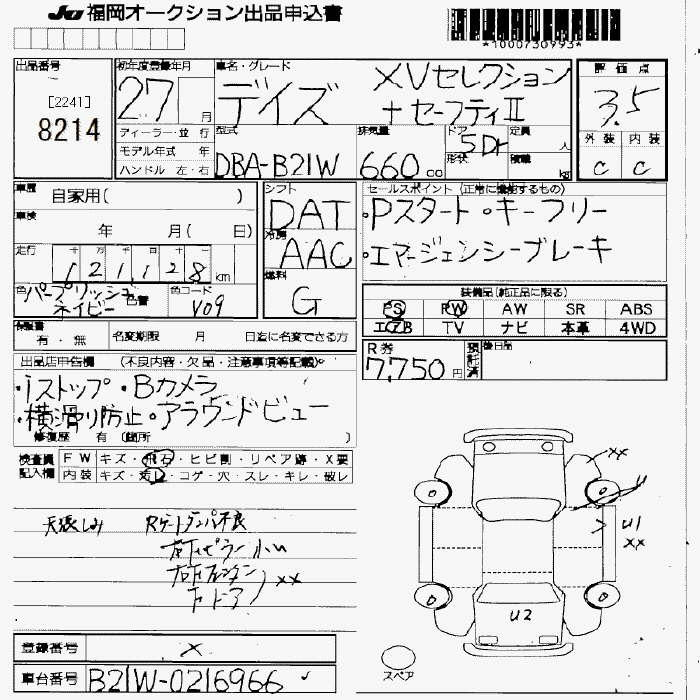 JU 福岡オークション出品申込書
*1000730993*
出品番号
[2241]
8214
初年度登録年月
27 月
ディーラー・並 行
モデル年式 年
ハンドル 左・右
車名・グレード
デイズ
XVセレクション
+セーフティII
型式
DBA-B21W
排気量
660 cc
ドア 5Dr
形状
定員 人
積載 kg
評 価 点
3.5
外 装 内 装
C C
車歴 自家用( )
車検 年 月( 日)
走行 121,128 km
色 パープリッシュ
ネイビー 色替
色コード V09
シフト
DAT
冷房
AAC
燃料
G
セールスポイント (正常に機能するもの)
・Pスタート・キーフリー
・エマージェンシーブレーキ
装備品(純正品に限る)
PS PW AW SR ABS
エアB TV ナビ 本革 4WD
保証書
有・無
名変期限 月 日迄に名変できる方
R券
7,750 円
預託済
後日品
出品店申告欄 (不良内容・欠品・注意事項等記載)
・iストップ・Bカメラ
・横滑り防止・アラウンドビュー
修復歴 有 (箇所 )
検査員
記入欄
FW キズ・飛石・ヒビ割・リペア跡・X要
内装 キズ・汚レ・コゲ・穴・スレ・キレ・破レ
天張しみ Rゲートダンパ不良
右下ピラー小U
xx
下ドア
xx
U
U1
xx
U2
スペア
登録番号 X
車台番号 B21W-0216966